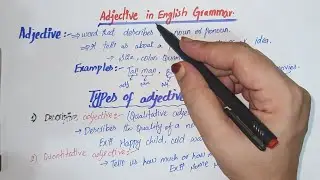 Adjective in English Grammar
Adjective :- ⇒ word that describes noun or pronoun.
⇒ It tell us about a idea.
⇒ Size, color
Examples:- Tall man,
Types of adjective
1) Descriptive adjective:- (Qualitative adject
⇒ Describes the Quality of a no
Ex:- Happy child, cold wat
2) Quantitative adjective:-
⇒ Tell us how much or how
Ex:- Some